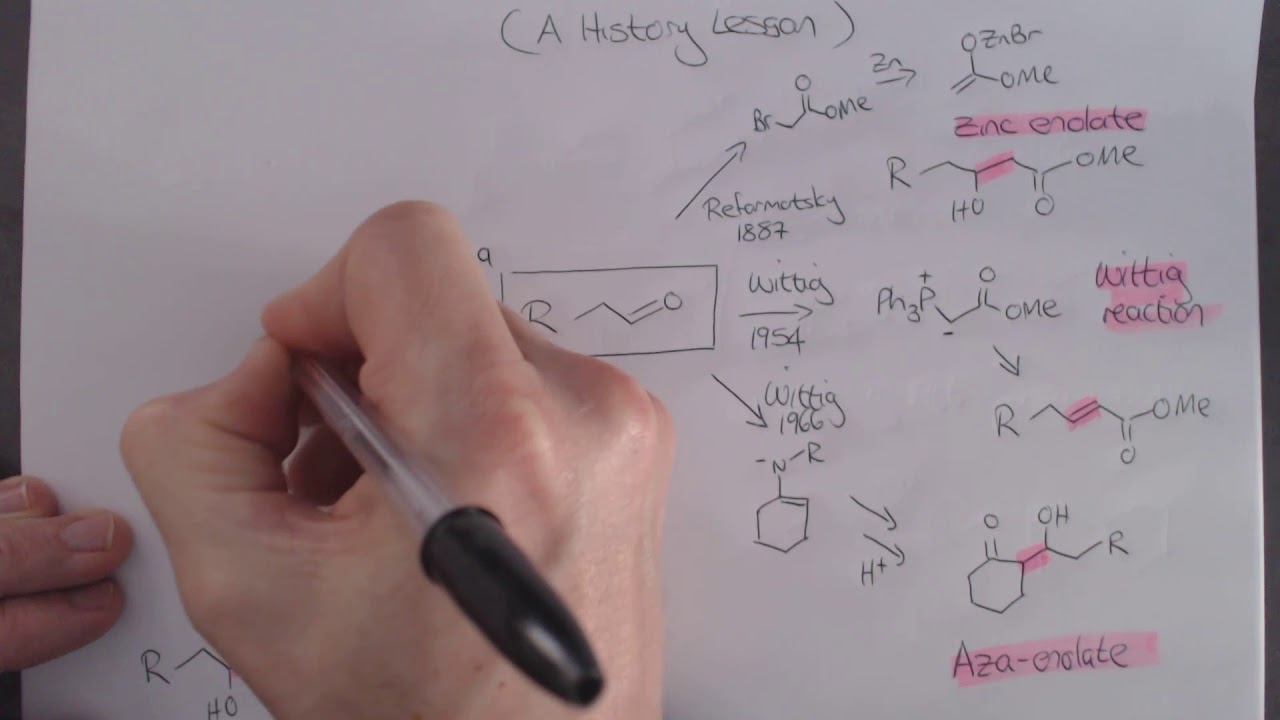 (A History Lesson)
Zn
OZnBr
OMe
O
Br
OMe
Zinc enolate
R
OMe
HO
O
Reformatsky
1887
a
R
O
Wittig
1954
+
Ph3P
-
O
OMe
Wittig
reaction
R
OMe
O
Wittig
1966
-N-R
H+
O
OH
R
Aza-enolate
R
HO